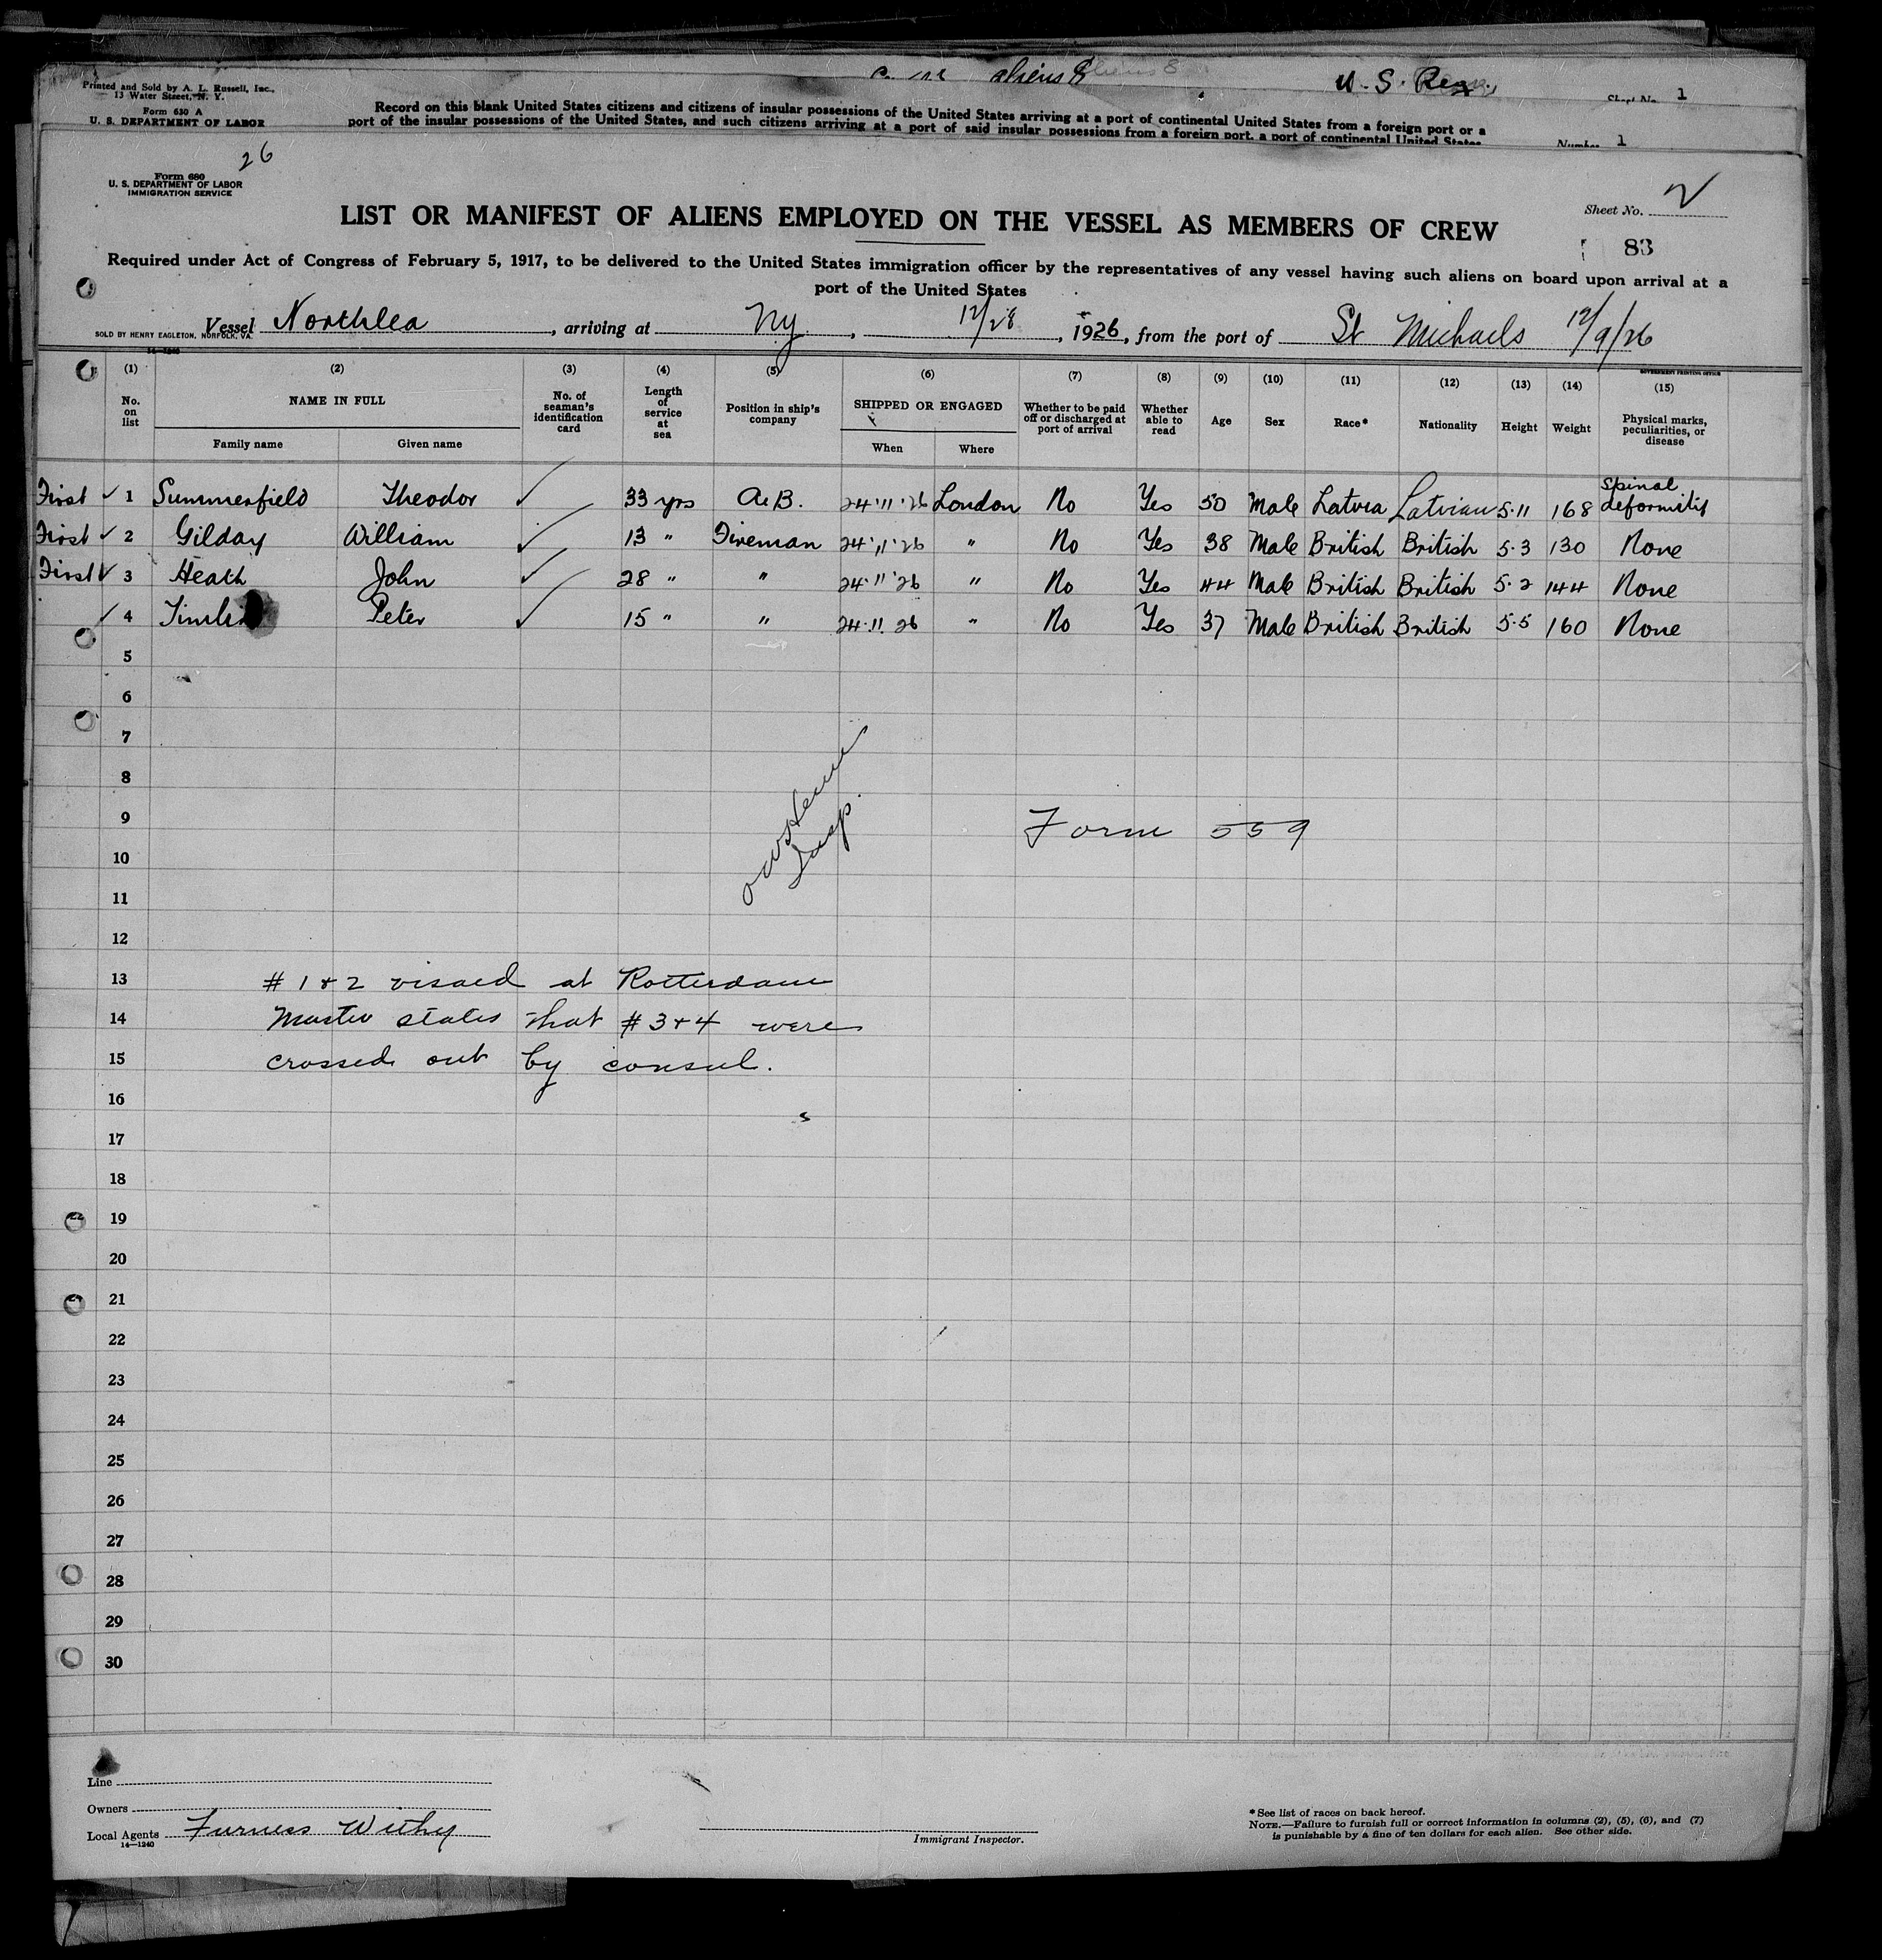 aliens 8
U. S. Rex.
Printed and Sold by A. L. Russell, Inc.,
13 Water Street, N. Y.
Form 630 A
U. S. DEPARTMENT OF LABOR
Sheet No. 1
Record on this blank United States citizens and citizens of insular possessions of the United States arriving at a port of continental United States from a foreign port or a
port of the insular possessions of the United States, and such citizens arriving at a port of said insular possessions from a foreign port, a port of continental United States
Number 1
26
Form 680
U. S. DEPARTMENT OF LABOR
IMMIGRATION SERVICE
Sheet No. 2
LIST OR MANIFEST OF ALIENS EMPLOYED ON THE VESSEL AS MEMBERS OF CREW
83
Required under Act of Congress of February 5, 1917, to be delivered to the United States immigration officer by the representatives of any vessel having such aliens on board upon arrival at a
port of the United States
Vessel Northlea, arriving at Ny, 12/28, 1926, from the port of St Michaels 12/9/26
SOLD BY HENRY EAGLETON, NORFOLK, VA.
14—1240
GOVERNMENT PRINTING OFFICE
(1) (2) (3) (4) (5) (6) (7) (8) (9) (10) (11) (12) (13) (14) (15)
No. on list NAME IN FULL No. of seaman's identification card Length of service at sea Position in ship's company SHIPPED OR ENGAGED Whether to be paid off or discharged at port of arrival Whether able to read Age Sex Race* Nationality Height Weight Physical marks, peculiarities, or disease
Family name Given name When Where
First ✓ 1 Summerfield Theodor ✓ 33 yrs A.B. 24.11.26 London No Yes 50 Male Latvia Latvian 5.11 168 Spinal deformitis
First ✓ 2 Gilday William ✓ 13 " Fireman 24.11.26 " No Yes 38 Male British British 5.3 130 None
First ✓ 3 Heath John ✓ 28 " " 24.11.26 " No Yes 44 Male British British 5.2 144 None
✓ 4 Timlin Peter ✓ 15 " " 24.11.26 " No Yes 37 Male British British 5.5 160 None
5
6
7
8
9 Form 559
10
Insp.
11
12
13 # 1 + 2 visaed at Rotterdam
14 Master states that # 3 + 4 were
15 crossed out by consul.
16
17
18
19
20
21
22
23
24
25
26
27
28
29
30
Line
Owners
Local Agents Furness Withy
14—1240
Immigrant Inspector.
*See list of races on back hereof.
NOTE.—Failure to furnish full or correct information in columns (2), (5), (6), and (7)
is punishable by a fine of ten dollars for each alien. See other side.